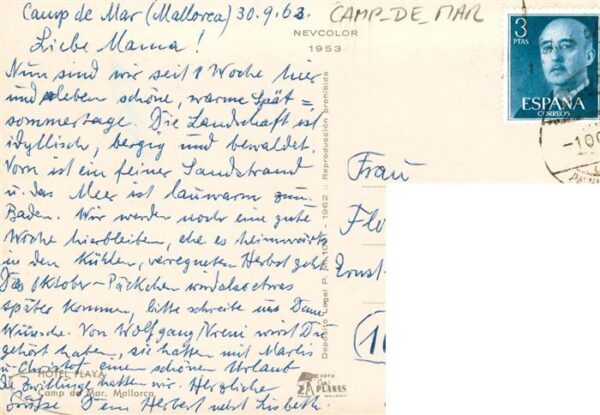 Camp de Mar (Mallorca) 30.9.63.
CAMP-DE-MAR
Liebe Mama!
NEVCOLOR
1953
3
PTAS
ESPAÑA
CORREOS
Nun sind wir seit 1 Woche hier
und erleben schöne, warme Spät=
sommertage. Die Landschaft ist
idyllisch, bergig und bewaldet.
Vorn ist ein feiner Sandstrand
u. das Meer ist lauwarm zum
Baden. Wir werden noch eine gute
Woche hierbleiben, ehe es heimwärts
in den kühlen, verregneten Herbst geht.
Das Oktober-Päckchen wird also etwas
später kommen, bitte schreibe uns Deine
Wünsche. Von Wolfgang/Vreni wirst Du
gehört haben, sie hatten mit Marlis
u. Christof einen schönen Urlaub
Die Zwillinge hatten wir. Herzliche
Grüße Dein Herbert nebst Lisbeth.
HOTEL PLAYA
Camp de Mar. Mallorca
Reproducción prohibida
Depósito Legal P. M. 1001 - 1962
FOTO
PLANAS
Frau
Flo
Ernst-
(16
-1 OC